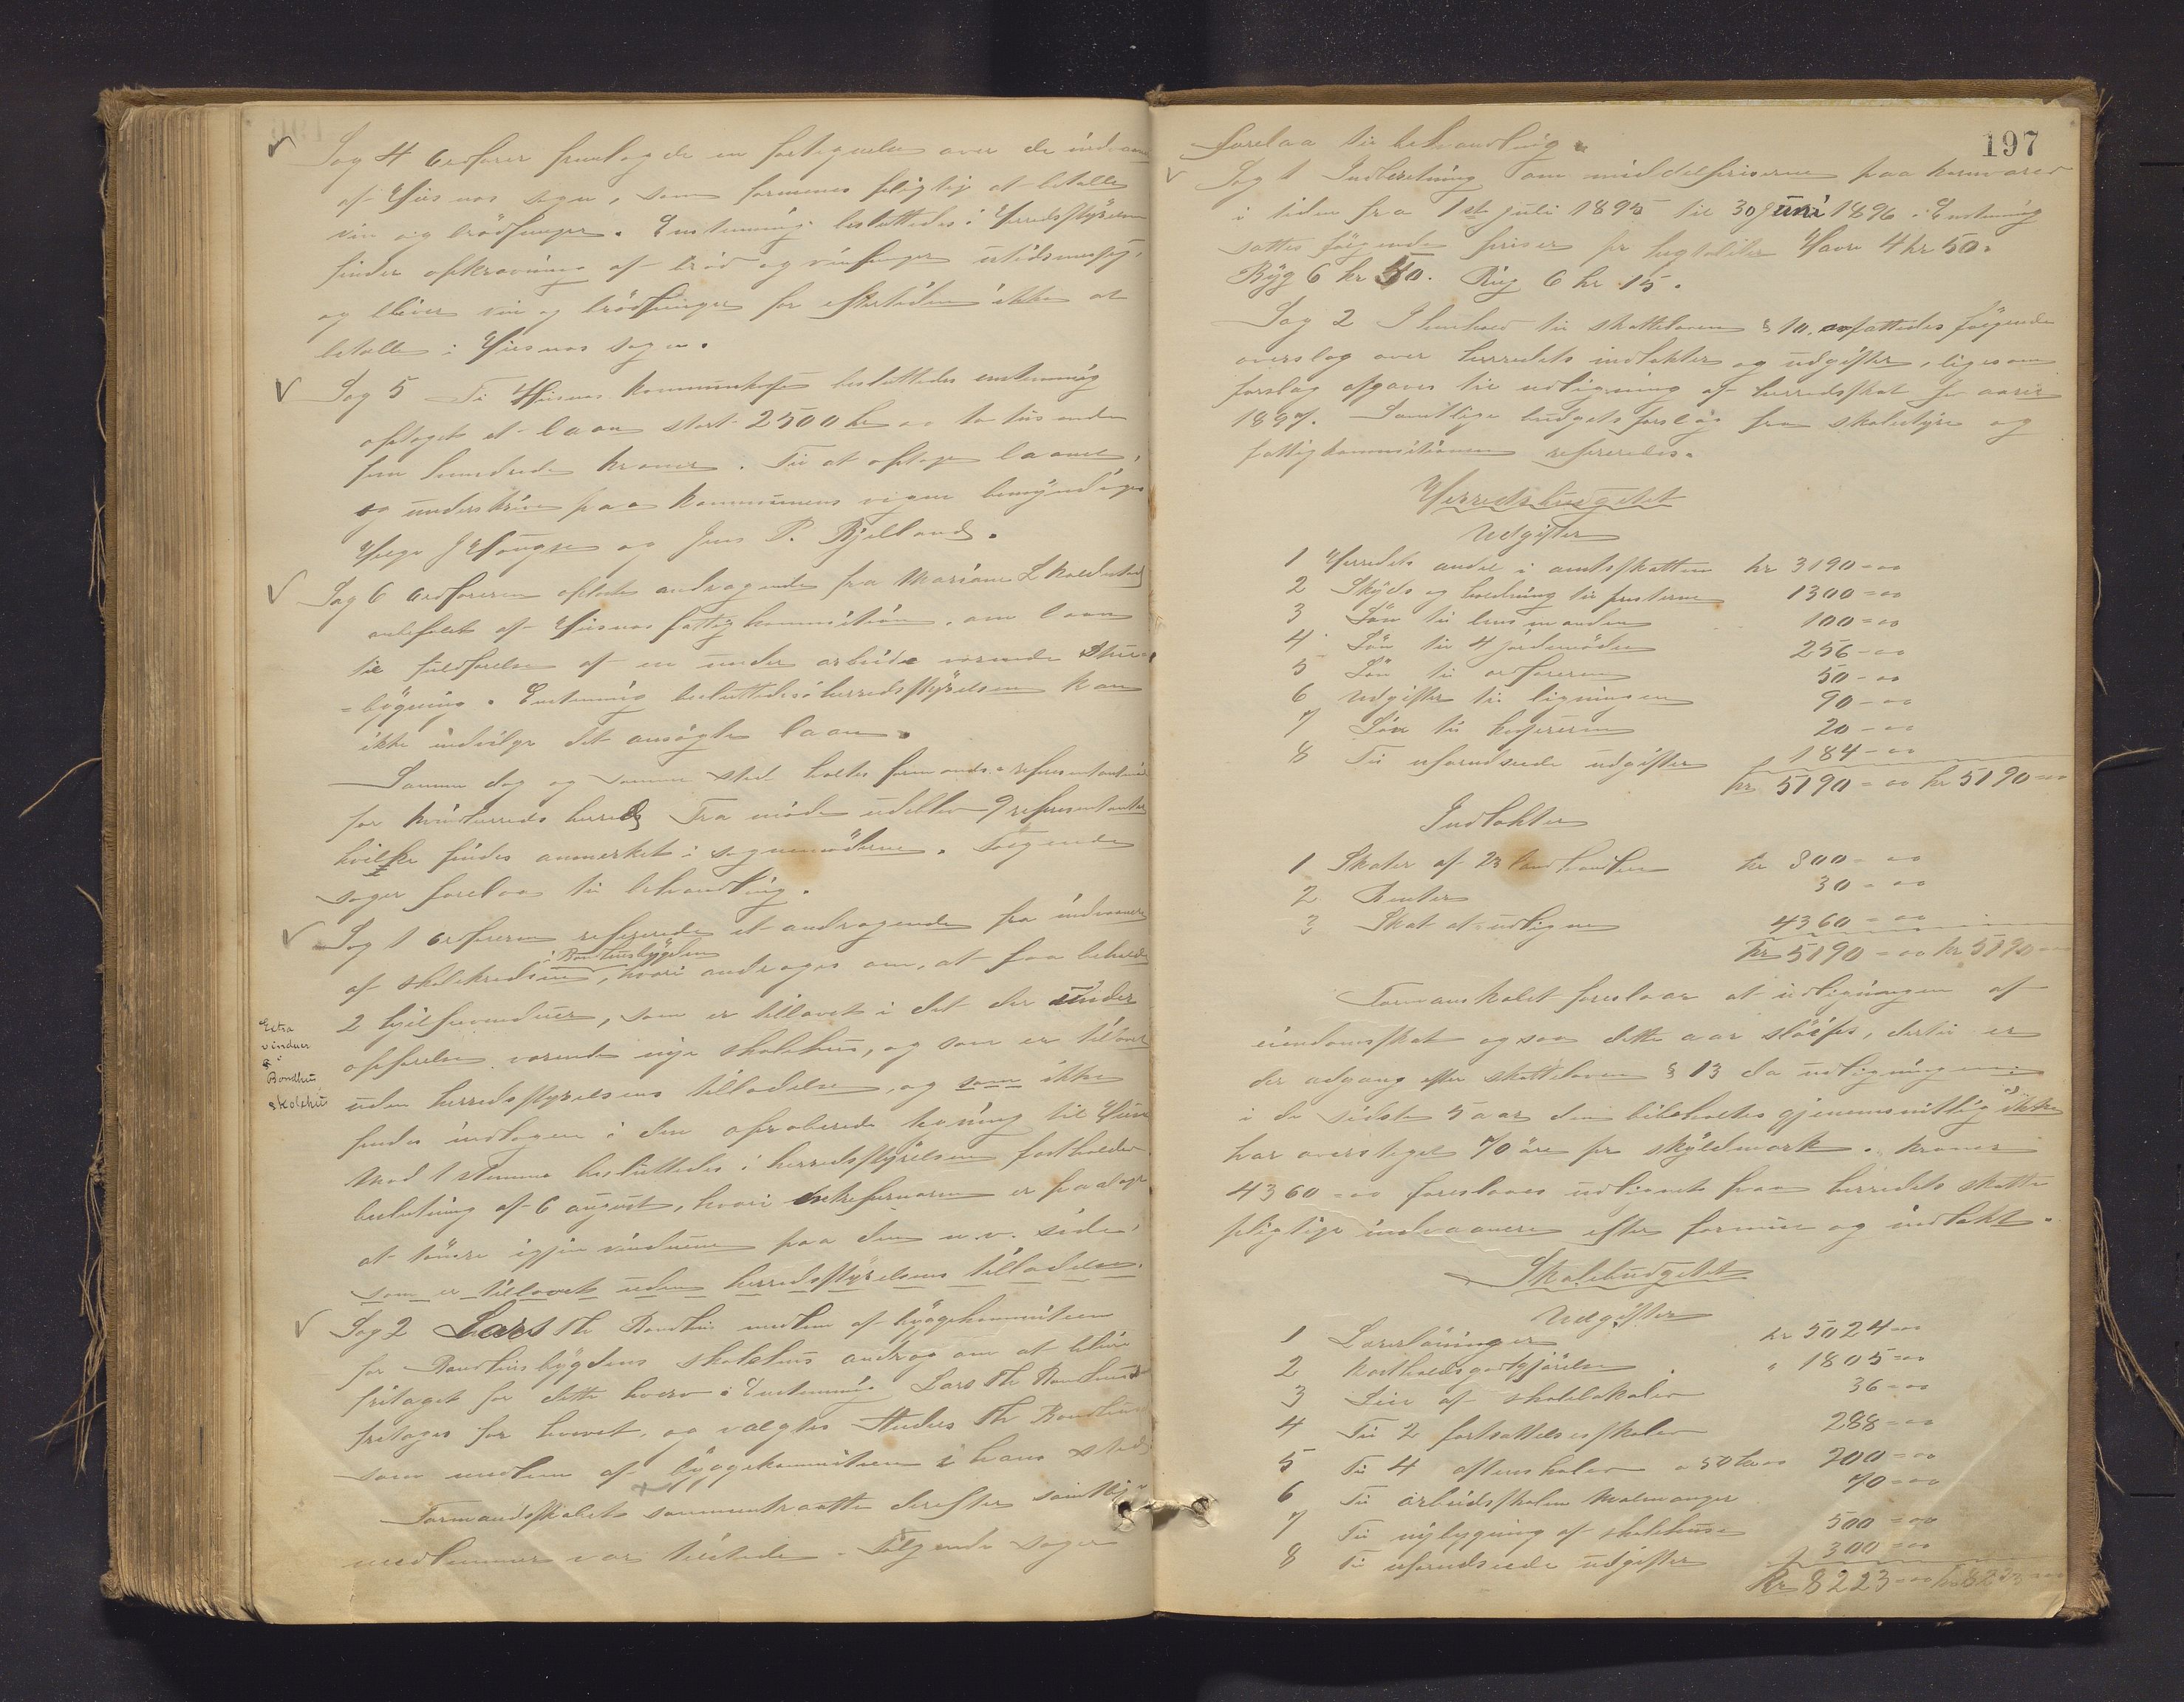 Sag 4 Ordfører fremlagde en fortegnelse over de indvaanere
af Husnes sogn, som formenes pligtig at betalle
vin og brødpenger. Enstemmig besluttedes: Herredsstyrelsen
finder opkrævning af brød og vinpenger utidsmessig,
og bliver vin og brødpenger for eftertiden ikke at
betalle i Husnes sogn.
Sag 5 Til Husnes kommunekasse besluttedes enstemmig
optaget et laan stort 2500 kr to tusende
fem hundrede kroner. Til at optage laanet,
og underskrive paa kommunens vegne bemyndiges
Helge J Haugse og Jens P. Kjelland.
Sag 6 Ordføreren oplæste andragende fra Mariane L
anbefalet af Husnes fattigkommission, om laan
til fuldførelse af en under arbeide værende Stue-
=bygning. Enstemmig besluttedes: herredsstyrelsen kan
ikke indvilge det ansøgte laan.
Samme dag og samme sted holtes formands- representantmøde
for kvindherreds herred Fra møde udeblev 9 representanter
hvilke findes anmerket i sognemøderne. Følgende
sager forelaa til behandling.
Sag 1 ordføreren refererede et andragende fra indvaanere
i Bondhusbygden
af skolekredsen, hvori andrages om, at faa beholde
2 vinduer, som er tillavet i det der under
opførelse værende nye skolehus, og som er tillavet
uden herredsstyrelsens tilladelse, og som ikke
findes indtagen i den aproberede tegning til huset
Mod 1 stemme besluttedes: herredsstyrelsen fastholder
beslutning af 6 august, hvori entreprenøren er paalagt
at tømre igjen vinduerne paa den n.v. side,
som er tillavet uden herredsstyrelsens tilladelse.
Extra
vinduer
i
Bondhus
skolehus
Sag 2 Lars Th Bondhus medlem af byggekommiteen
for Bondhusbygdens skolehus androg om at blive
fritaget for dette hverv: Enstemmig Lars Th Bondhus
fritages for hvervet, og valgtes Anders Th Bondhus
som medlem af byggekommiteen i hans sted
Formandsskabet sammentraatte derefter samtlige
medlemmer var tilstede. Følgende sager
197
forelaa til behandling.
Sag 1 Indberetning om middelpriserne paa kornvarer
i tiden fra 1ste juli 1895 til 30 juni 1896: Enstemmig
sattes følgende priser pr hegtoliter Havre 4 kr 50.
Byg 6 kr 50. Rug 6 kr 15.
Sag 2 I henhold til skatteloven § 10, opfattedes følgende
overslag over herredets indtekter og udgifter, ligesom
forslag afgaves til udligning af herredsskat for aaret
1897. Samtlige budgetsforslag fra skolestyre og
fattigkommisionen refereredes.
Herredsbudgetet
Udgifter
1 Herredets andel i amtsskatten kr 3190=00
2 Skyds og holdning til presterne 1300=00
3 Løn til lensmanden 100=00
4 Løn til 4 jordmødre 256=00
5 Løn til ordføreren 50=00
6 Udgifter til ligningen 90=00
7 Løn til kassereren 20=00
8 Til uforudseede udgifter 184=00
kr 5190=00 kr 5190=00
Indtekter
1 Skater af 23 landhandlere kr 800=00
2 Renter 30=00
3 Skat at udligne 4360=00
kr 5190=00 kr 5190=00
Formanskabet foreslaar at udligningen af
eiendomsskat ogsaa dette aar sløifes, dertil er
der adgang efter skatteloven § 13 da udligningen
i de sidste 5 aar den bibeholtes gjennemsnitlig ikke
har oversteget 70 øre pr skyldmark. Kroner
4360=00 foreslaaes udlignet paa herredets skatte
pligtige indvaanere efter formue og indtekt.
Skolebudgetet
Udgifter
1 Lærerlønninger kr 5024=00
2 Kostholdsgodtgjørelse " 1805=00
3 Leie af skolelokaler 36=00
4 Til 2 fortsættelsesskoler 288=00
5 Til 4 aftenskoler a 50 kr 200=00
6 Til arbeidsskolen Malmanger 70=00
7 Til nybygning af skolehuse 500=00
8 Til uforudseede udgifter 300=00
Kr 8223=00 kr 8223=00